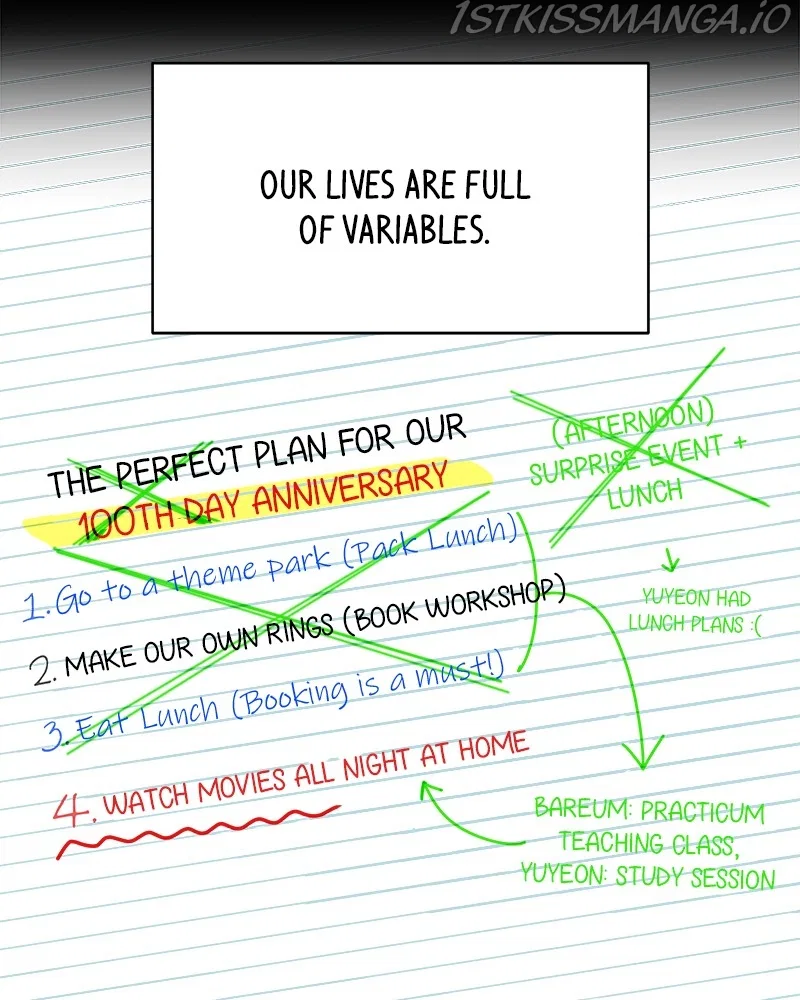 1STKISSMANGA.IO
OUR LIVES ARE FULL
OF VARIABLES.
THE PERFECT PLAN FOR OUR
100TH DAY ANNIVERSARY
1. Go to a theme park (Pack Lunch)
2. MAKE OUR OWN RINGS (BOOK WORKSHOP)
3. Eat Lunch (Booking is a must!)
4. WATCH MOVIES ALL NIGHT AT HOME
(AFTERNOON)
SURPRISE EVENT +
LUNCH
YUYEON HAD
LUNCH PLANS :(
BAREUM: PRACTICUM
TEACHING CLASS,
YUYEON: STUDY SESSION